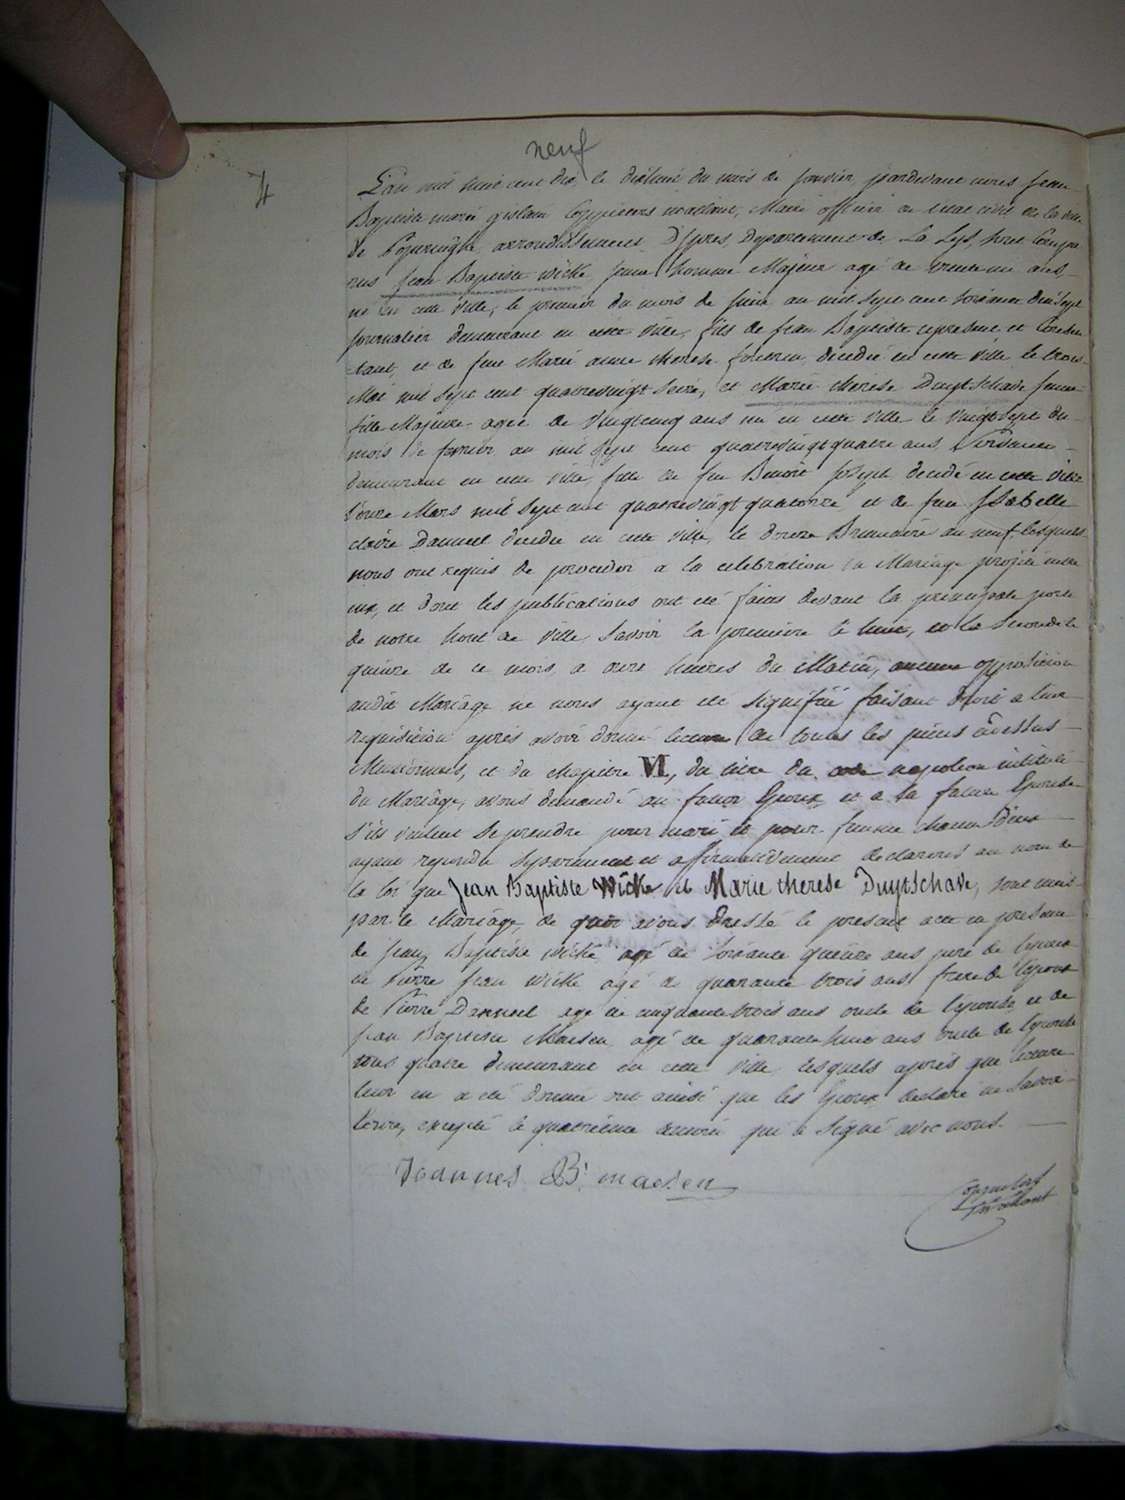 neuf
4
L'an mil huit cent dix, le dixhuit du mois de janvier pardevant nous Jean
Baptiste marie gislain, Maire officier de l'etat civil de la ville
de Poperinghe arrondissement D'Ypres, Departement de La Lys, sont Compa
rus Jean Baptiste wicke jeune homme Majeur agé de trente ans
né en cette ville, le premier du mois de juin an mil sept cent soixante dixsept
journalier demeurant en cette ville, fils de Jean Baptiste cypresent et Consen
tant, et de feue Marie anne therese decedée en cette ville le trois
Mai mil sept cent quatrevingt seize, et Marie therese Duytschave jeune
fille Majeure agée de vingtcinq ans née en cette ville le vingtsept du
mois de fevrier an mil sept cent quatrevingtquatre ans,
demeurant en cette ville, fille de feu Benoit joseph, decedé en cette ville
Mars mil sept cent quatrevingt quatorze et de feue Isabelle
claire Danneel decedée en cette ville, le Brumaire an neuf lesquels
nous ont requis de proceder a la celebration du Mariage projeté entre
eux, et dont les publications ont été faites devant la principale porte
de notre hotel de ville, savoir la premiere le huit, et la seconde le
quinze de ce mois, a onze heures du Matin, aucune opposition
audit Mariage ne nous ayant été signifiée faisant droit a leur
requisition après avoir donné lecture de toutes les pieces cidessus
Mentionnées, et du chapitre VI, du titre du code napoleon intitulé
du Mariage, avons demandé au futur Epoux et a la future Epouse
s'ils veulent se prendre pour mari et pour femme chacun d'eux
ayant repondu separement et affirmativement declarons au nom de
la loi que Jean Baptiste Wicke et Marie therese Duytschave, sont unis
par le Mariage, de quoi avons dressé le present acte en presence
de Jean Baptiste wicke agé de soixante quinze ans pere de l'epoux
de Pierre Jean wicke agé de quarante trois ans frere de l'epoux
de Pierre Danneel agé de cinquante trois ans oncle de l'epouse, et de
Jean Baptiste Maesen agé de quarante huit ans oncle de l'epouse
tous quatre demeurant en cette ville, lesquels après que lecture
leur en a été donnée ont ainsi que les Epoux declaré ne savoir
ecrire, excepté le quatrieme temoin qui a signé avec nous.
Joannes Bt. maesen